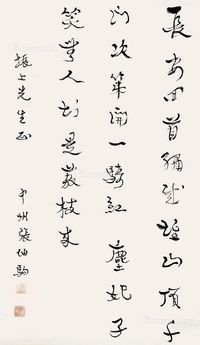 長安回首繡成堆山頂千
門次第開一騎紅塵妃子
笑無人知是荔枝來
先生正
中州張伯駒